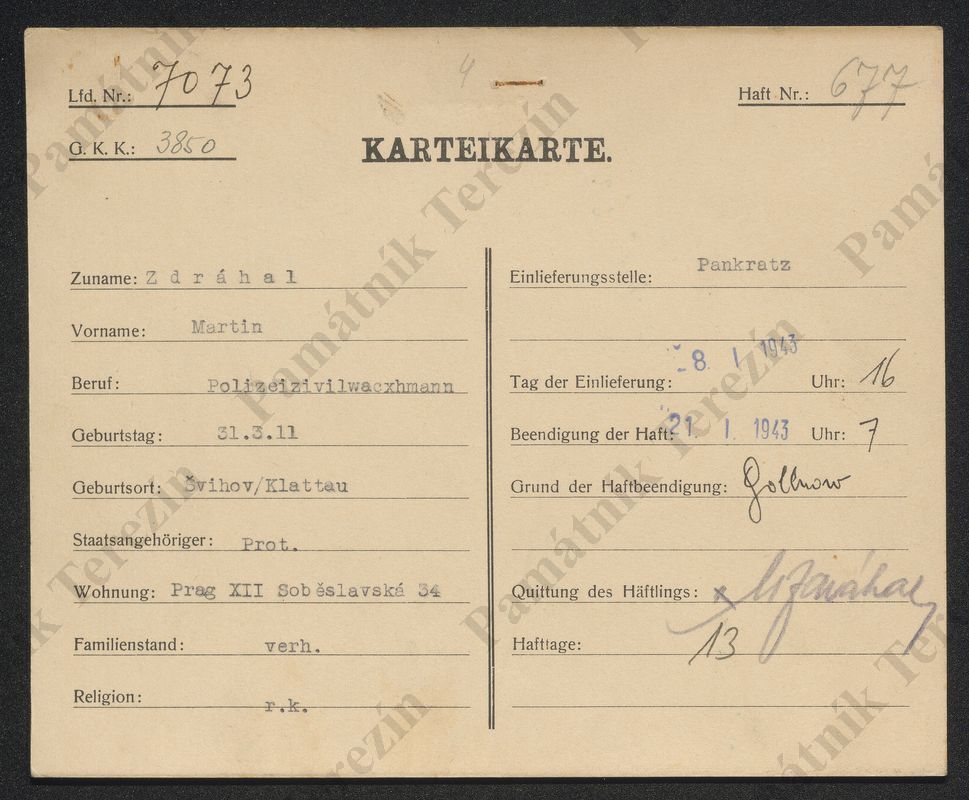 4
Lfd. Nr.: 7073
Haft Nr.: 677
G. K. K.: 3850
KARTEIKARTE.
Zuname: Zdráhal
Vorname: Martin
Beruf: Polizeizivilwacxhmann
Geburtstag: 31.3.11
Geburtsort: Švihov/Klattau
Staatsangehöriger: Prot.
Wohnung: Prag XII Soběslavská 34
Familienstand: verh.
Religion: r.k.
Einlieferungsstelle: Pankratz
Tag der Einlieferung: -8. I 1943 Uhr: 16
Beendigung der Haft: 21. I. 1943 Uhr: 7
Grund der Haftbeendigung: Gollnow
Quittung des Häftlings: x MZdráhal
Hafttage: 13
Památník Terezín
Památník Terezín
Památník Terezín
Památník Terezín